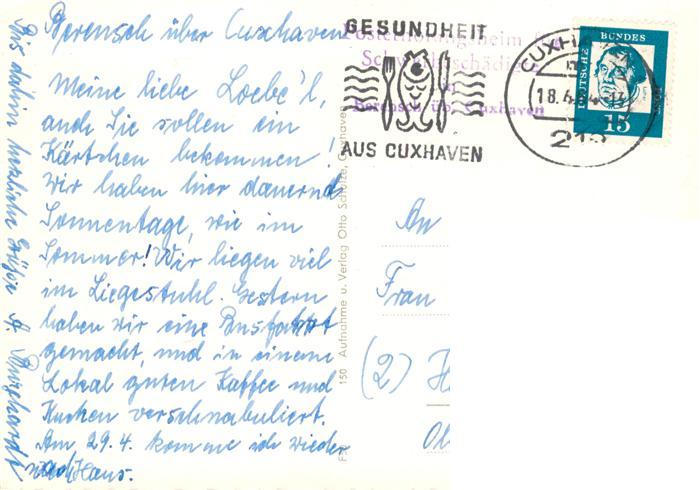 Berensch über Cuxhaven
Meine liebe Loebe'l,
auch Sie sollen ein
Kärtchen bekommen!
Wir haben hier dauernd
Sonnentage, wie im
Sommer! Wir liegen viel
im Liegestuhl. Gestern
haben wir eine Busfahrt
gemacht, und in einem
Lokal guten Kaffee und
Kuchen verschnabuliert.
Am 29.4. komme ich wieder
nach Haus.
Bis dahin herzliche Grüße
GESUNDHEIT
AUS CUXHAVEN
Schwerbeschädigte
in
Berensch üb. Cuxhaven
CUXHAVEN
18.4.
DEUTSCHE BUNDES
15
150 Aufnahme u. Verlag Otto Schulze, Cuxhaven
An
Frau
(2)